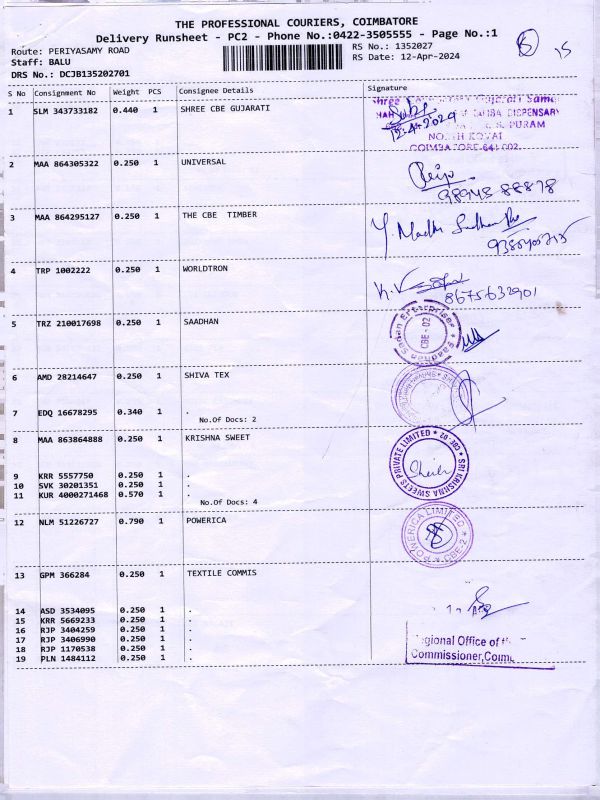 THE PROFESSIONAL COURIERS, COIMBATORE
Delivery Runsheet - PC2 - Phone No.:0422-3505555 - Page No.:1
Route: PERIYASAMY ROAD
Staff: BALU
DRS No.: DCJB135202701
RS No.: 1352027
RS Date: 12-Apr-2024
S No Consignment No Weight PCS Consignee Details Signature
1 SLM 343733182 0.440 1 SHREE CBE GUJARATI
12.4.2024
DISPENSARY
R.S. PURAM
NORTH KOVAI
COIMBATORE-641 002.
2 MAA 864305322 0.250 1 UNIVERSAL
Priya
98943 88878
3 MAA 864295127 0.250 1 THE CBE TIMBER
4 TRP 1002222 0.250 1 WORLDTRON
8675632901
5 TRZ 210017698 0.250 1 SAADHAN
CBE - 02
6 AMD 28214647 0.250 1 SHIVA TEX
7 EDQ 16678295 0.340 1 .
No.Of Docs: 2
8 MAA 863864888 0.250 1 KRISHNA SWEET
SRI KRISHNA SWEETS PRIVATE LIMITED ★ CBE-02 ★
9 KRR 5557750 0.250 1 .
10 SVK 30201351 0.250 1 .
11 KUR 4000271468 0.570 1 .
No.Of Docs: 4
12 NLM 51226727 0.790 1 POWERICA
POWERICA LIMITED ★ CBE-2 ★
13 GPM 366284 0.250 1 TEXTILE COMMIS
14 ASD 3534095 0.250 1 .
15 KRR 5669233 0.250 1 .
16 RJP 3404259 0.250 1 .
17 RJP 3406990 0.250 1 .
18 RJP 1170538 0.250 1 .
19 PLN 1484112 0.250 1 .
egional Office of th
Commissioner,Coim